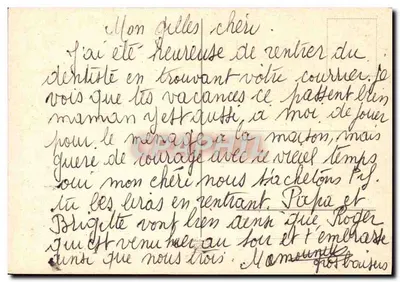 Mon gilles chéri.
J'ai été heureuse de rentrer du
dentiste en trouvant votre courrier. Je
vois que tes vacances ce passent bien
maman y est aussi, a moi de jouer
pour le ménage a la maison, mais
guere de courage avec le vieux temps
oui mon chéri nous t'achetons
tu les liras en rentrant Papa et
Brigitte vont bien ainsi que Roger
qui est venu hier au soir et t'embrasse
ainsi que nous trois.
gros baisers